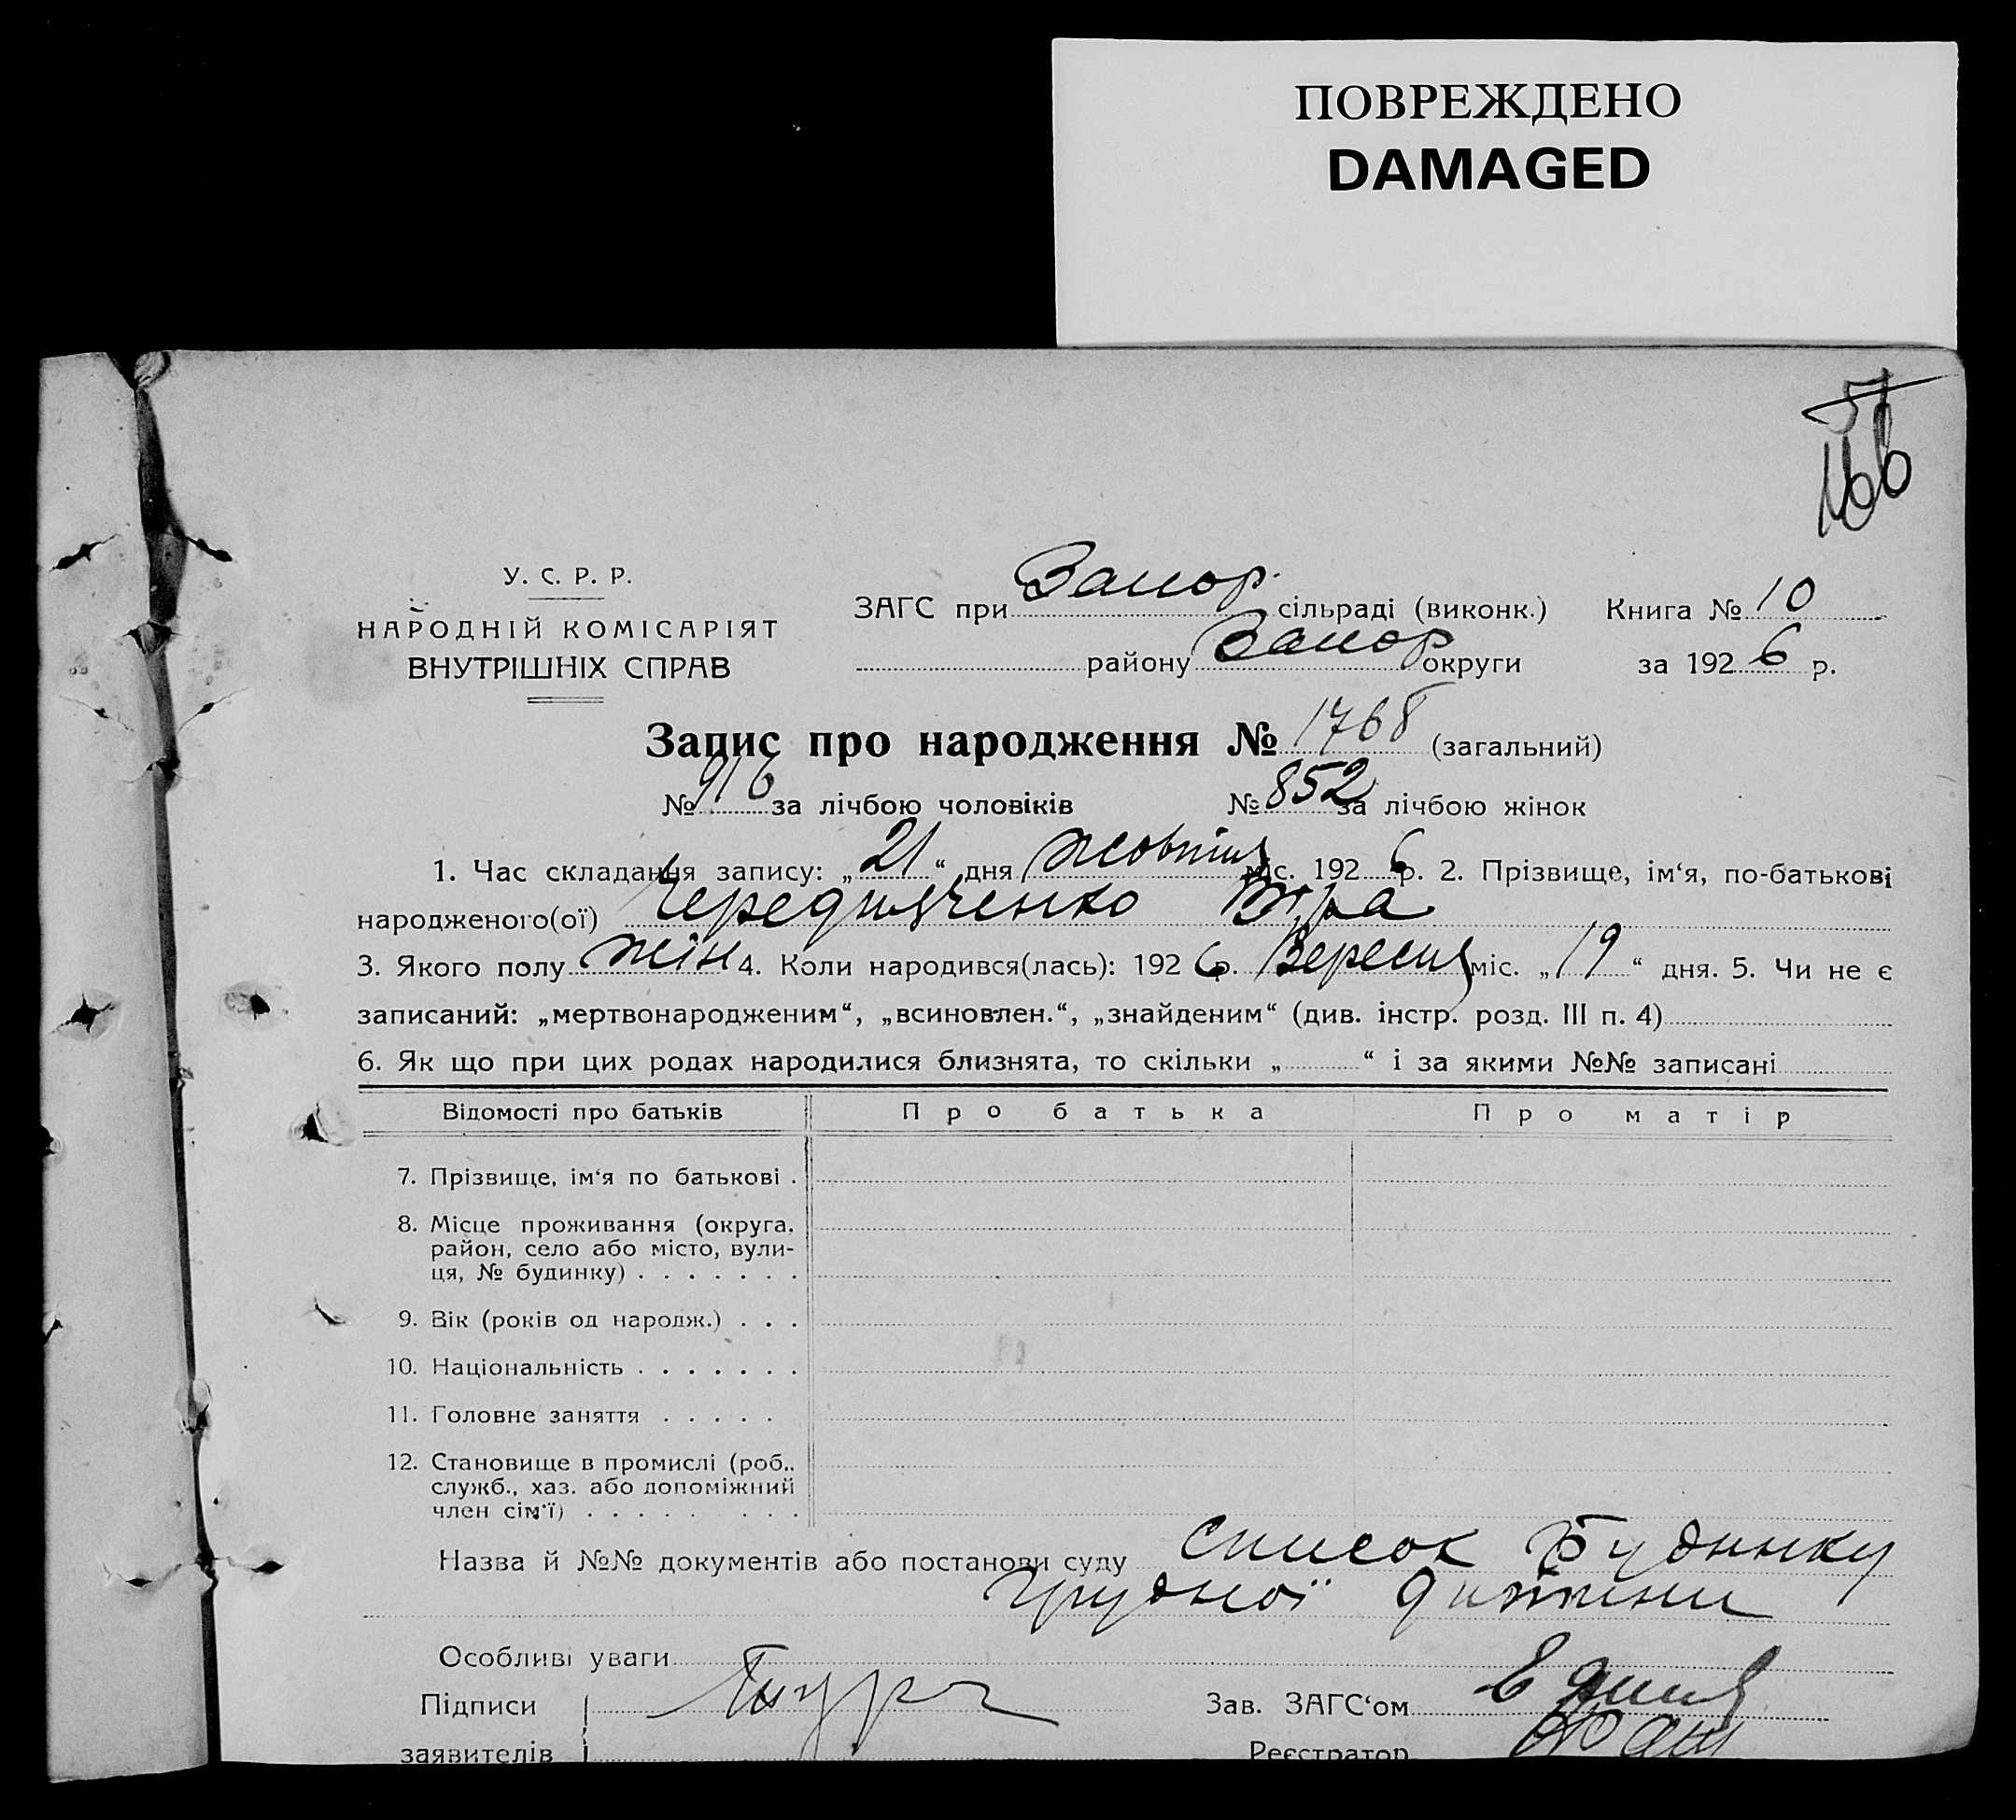 ПОВРЕЖДЕНО
DAMAGED
51
166
У. С. Р. Р.
НАРОДНІЙ КОМІСАРІЯТ
ВНУТРІШНІХ СПРАВ
ЗАГС при Запор. сільраді (виконк.) Книга № 10
району Запор округи за 1926 р.
Запис про народження № 1768 (загальний)
№ 916 за лічбою чоловіків № 852 за лічбою жінок
1. Час складання запису: „21“ дня жовтня міс. 1926 р. 2. Прізвище, ім‘я, по-батькові
народженого(ої) Чередниченко Віра
3. Якого полу жін 4. Коли народився(лась): 1926 р. Вересня міс. „19“ дня. 5. Чи не є
записаний: „мертвонародженим“, „всиновлен.“, „знайденим“ (див. інстр. розд. III п. 4)
6. Як що при цих родах народилися близнята, то скільки „ “ і за якими №№ записані
Відомості про батьків Про батька Про матір
7. Прізвище, ім‘я по батькові .
8. Місце проживання (округа,
район, село або місто, вули-
ця, № будинку) . . . . . . .
9. Вік (років од народж.) . . .
10. Національність . . . . . . .
11. Головне заняття . . . . .
12. Становище в промислі (роб.,
служб., хаз. або допоміжний
член сім‘ї) . . . . . . . . .
Назва й №№ документів або постанови суду Список Будинку
грудної дитини
Особливі уваги
Підписи Зав. ЗАГС‘ом
заявителів Реєстратор